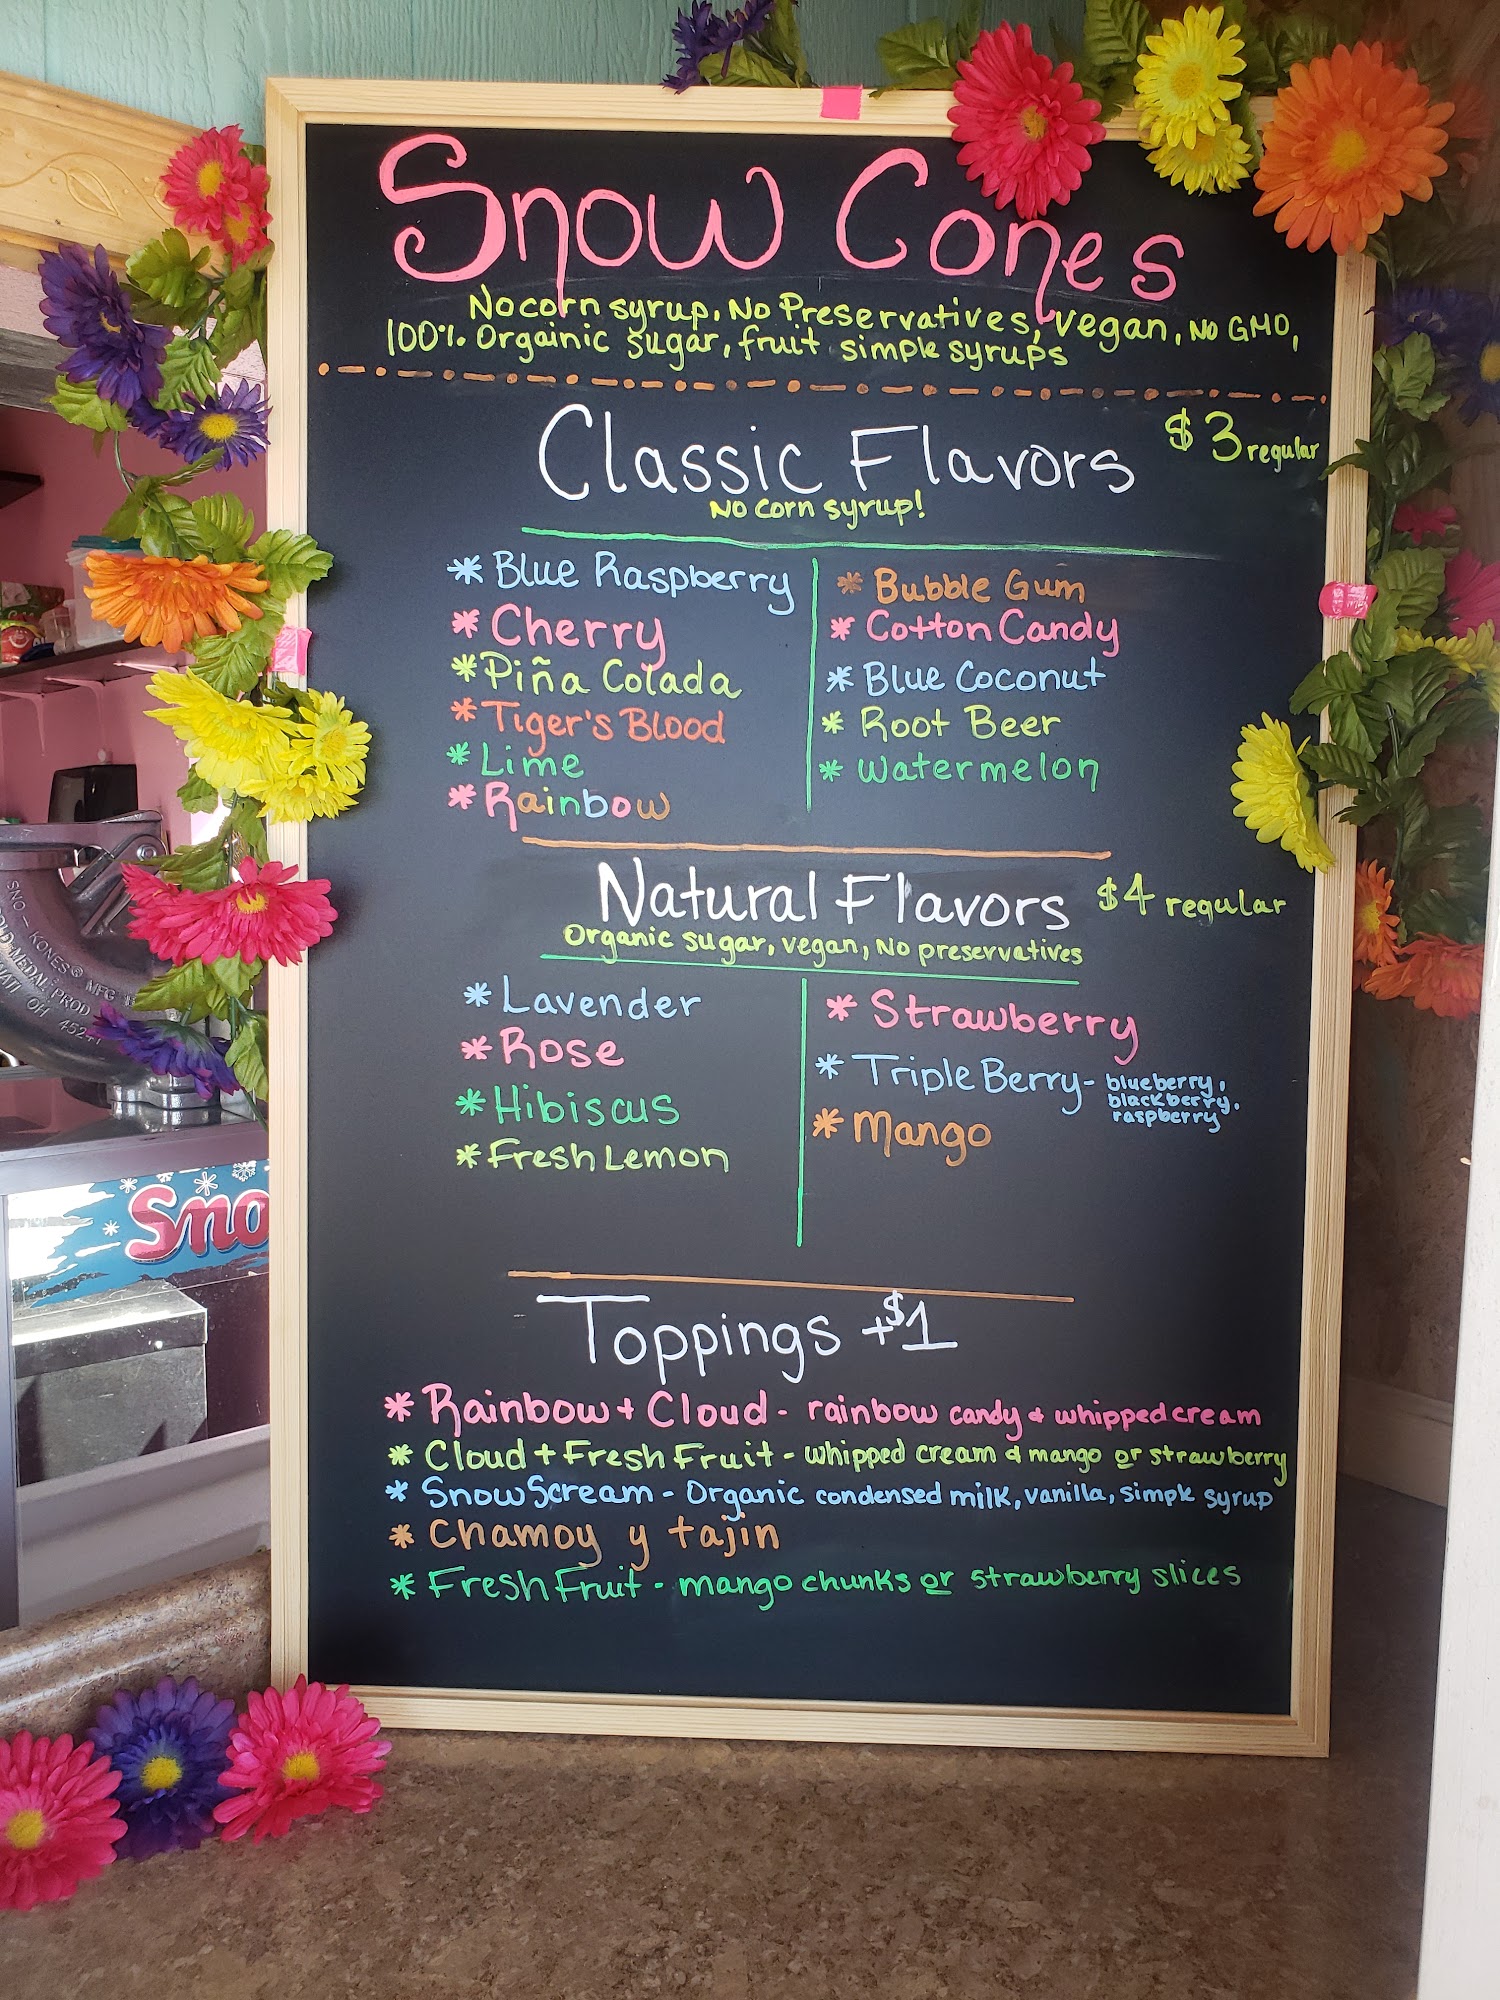 Snow Cones
No corn syrup, No Preservatives, vegan, No GMO,
100% Orgainic sugar, fruit simple syrups
Classic Flavors $3 regular
No corn syrup!
* Blue Raspberry
* Cherry
* Piña Colada
* Tiger's Blood
* Lime
* Rainbow
* Bubble Gum
* Cotton Candy
* Blue Coconut
* Root Beer
* Watermelon
Natural Flavors $4 regular
Organic sugar, vegan, No preservatives
* Lavender
* Rose
* Hibiscus
* Fresh Lemon
* Strawberry
* Triple Berry - blueberry,
blackberry,
raspberry
* Mango
Toppings +$1
* Rainbow + Cloud - rainbow candy & whipped cream
* Cloud + Fresh Fruit - whipped cream & mango or strawberry
* Snow Scream - Organic condensed milk, vanilla, simple syrup
* Chamoy y tajin
* Fresh Fruit - mango chunks or strawberry slices
SNO-KONES® MFG
GOLD MEDAL PROD
OH 452
Sno